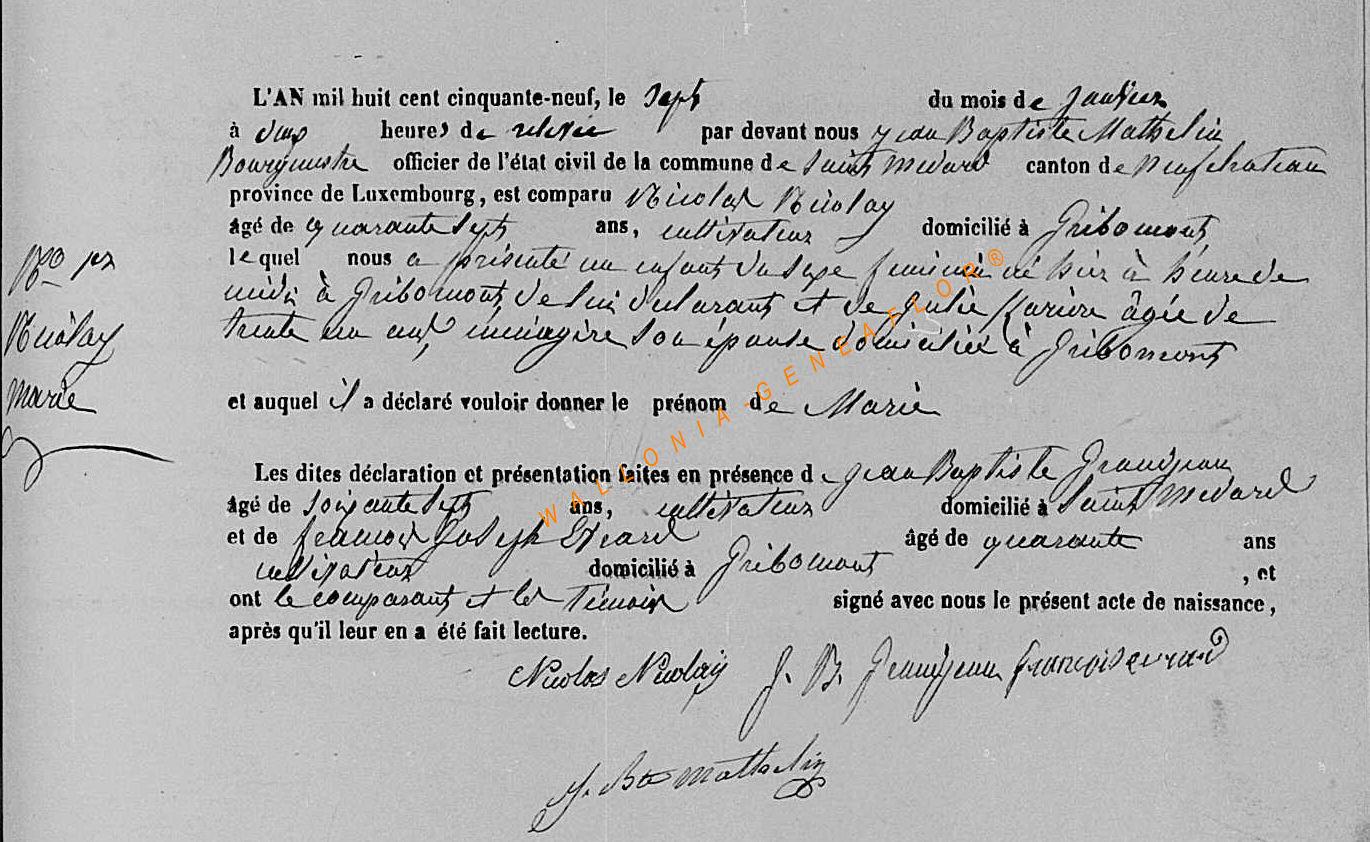 L'AN mil huit cent cinquante-neuf, le Sept du mois de Janvier
à deux heures de relevée par devant nous Jean Baptiste Mathelin
Bourgmestre officier de l'état civil de la commune de Saint Médard canton de Neufchateau
province de Luxembourg, est comparu Nicolas Nicolay
âgé de quarante sept ans, cultivateur domicilié à Gribomont,
lequel nous a présenté un enfant du sexe feminin né hier à heure de
midi à Gribomont, de lui déclarant et de Julie âgée de
trente un ans, ménagère son épouse domiciliée à Gribomont
et auquel il a déclaré vouloir donner le prénom de Marie
No 1er
Nicolay
Marie
Les dites déclaration et présentation faites en présence de Jean Baptiste Grandjean
âgé de soixante sept ans, cultivateur domicilié à Saint Médard
et de françois Joseph Evrard âgé de quarante ans
cultivateur domicilié à Gribomont , et
ont le comparant et les témoins signé avec nous le présent acte de naissance,
après qu'il leur en a été fait lecture.
Nicolas Nicolay J. B. Grandjean francois evrard
J. Bte Mathelin
WALLONIA-GENEAFLOR®